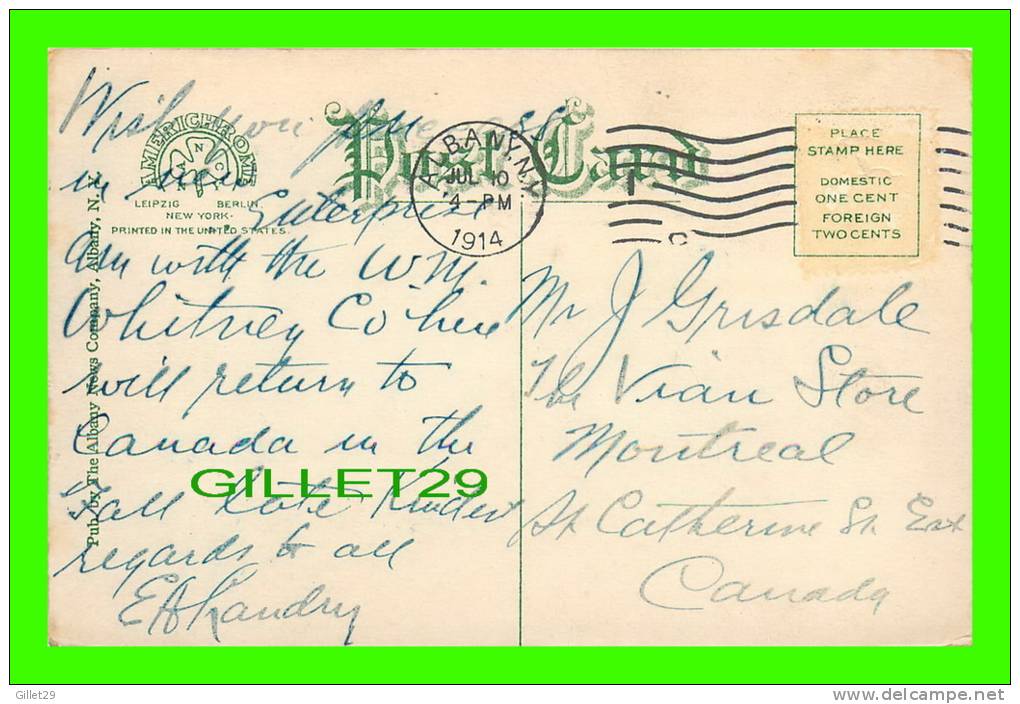 Wish you success
in new
Enterprise
Am with the W.M.
Whitney Co here
will return to
Canada in the
Fall late Kindest
regards to all
EALandry
AMERICHROME
A N C
LEIPZIG BERLIN
NEW YORK
PRINTED IN THE UNITED STATES.
Pub. by The Albany News Company, Albany, N.Y.
Post Card
ALBANY, N.Y.
JUL 10
4-PM
1914
PLACE
STAMP HERE
DOMESTIC
ONE CENT
FOREIGN
TWO CENTS
Mr J Grisdale
The Vian Store
Montreal
St Catherine St East
Canada
GILLET29
Gillet29
www.delcampe.net